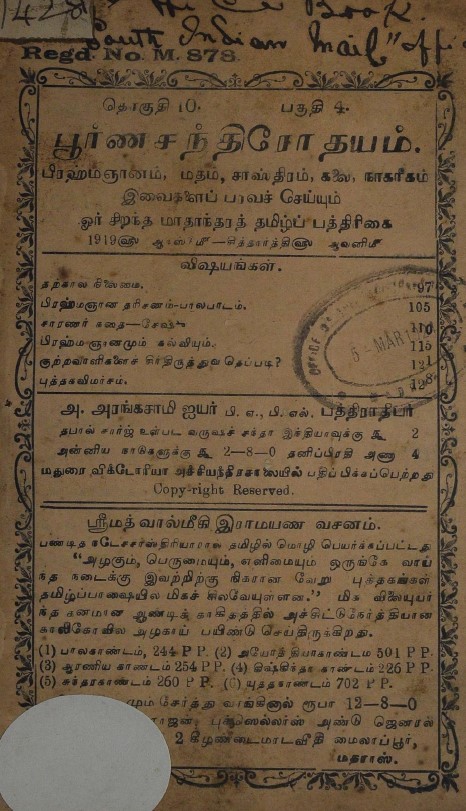 1428
The C. Book.
South Indian Mail" offi
Regd. No. M. 878.
தொகுதி 10. பகுதி 4.
பூர்ணசந்திரோதயம்.
பிரஹ்மஞானம், மதம், சாஸ்திரம், கலை, நாகரிகம்
இவைகளைப் பரவச் செய்யும்
ஓர் சிறந்த மாதாந்தரத் தமிழ்ப் பத்திரிகை
1919ஹு ஆகஸ்டுமீ—சித்தார்த்திஹு ஆவணிமீ
விஷயங்கள்.
தற்கால நிலைமை. 97
பிரஹ்மஞான தரிசனம்-பாலபாடம். 105
சாரணர் கதை— 110
பிரஹ்மஞானமும் கல்வியும். 115
குற்றவாளிகளைச் சீர்திருத்துவதெப்படி? 121
புத்தகவிமர்சம். 128
5 - MAR
அ. அரங்கசாமி ஐயர் பி. ஏ., பி. எல். பத்திராதிபர்
தபால் சார்ஜ் உள்பட வருஷச் சந்தா இந்தியாவுக்கு ரூ 2
அன்னிய நாடுகளுக்கு ரூ 2—8—0 தனிப்பிரதி அணா 4
மதுரை விக்டோரியா அச்சியந்திரசாலையில் பதிப்பிக்கப்பெற்றது
Copy-right Reserved.
ஸ்ரீமத் வால்மீகி இராமயண வசனம்.
பண்டித நடேசசாஸ்திரியாரால் தமிழில் மொழி பெயர்க்கப்பட்டது
"அழகும், பெருமையும், எளிமையும் ஒருங்கே வாய்
ந்த நடைக்கு இவற்றிற்கு நிகரான வேறு புத்தகங்கள்
தமிழ்ப்பாஷையில் மிகச் சிலவேயுள்ளன." மிக விலையுயர்
ந்த கனமான ஆண்டிக் காகிதத்தில் அச்சிட்டு நேர்த்தியான
காலிகோவில் அழகாய் பயிண்டு செய்திருக்கிறது.
(1) பாலகாண்டம், 244 P P. (2) அயோத்தியாகாண்டம் 501 P P.
(3) ஆரணிய காண்டம் 254 P P. (4) கிஷ்கிந்தா காண்டம் 226 P P.
(5) சுந்தரகாண்டம் 260 P P. (6) யுத்தகாண்டம் 702 P P.
மும் சேர்த்து வாங்கினால் ரூபா 12—8—0
ராஜன், புக்ஸெல்லர்ஸ் அண்டு ஜெனரல்
2 கீழண்டைமாடவீதி மைலாப்பூர்,
மதராஸ்.